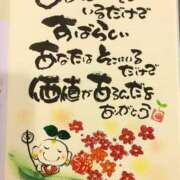 いるだけで
すばらしい
あなたは そこにいる
だけで
価値があるんだよ
ありがとう